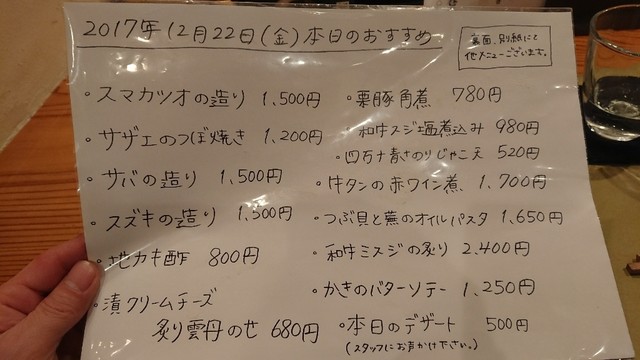 2017年12月22日(金)本日のおすすめ
裏面、別紙にて
他メニューございます。
・スマカツオの造り 1,500円
・サザエのつぼ焼き 1,200円
・サバの造り 1,500円
・スズキの造り 1,500円
・地カキ酢 800円
・漬クリームチーズ
炙り雲丹のせ 680円
・栗豚角煮 780円
・和牛スジ塩煮込み 980円
・四万十青さのりじゃこ天 520円
・牛タンの赤ワイン煮 1,700円
・つぶ貝と蕪のオイルパスタ 1,650円
・和牛ミスジの炙り 2,400円
・かきのバターソテー 1,250円
・本日のデザート 500円
(スタッフにお声かけ下さい。)